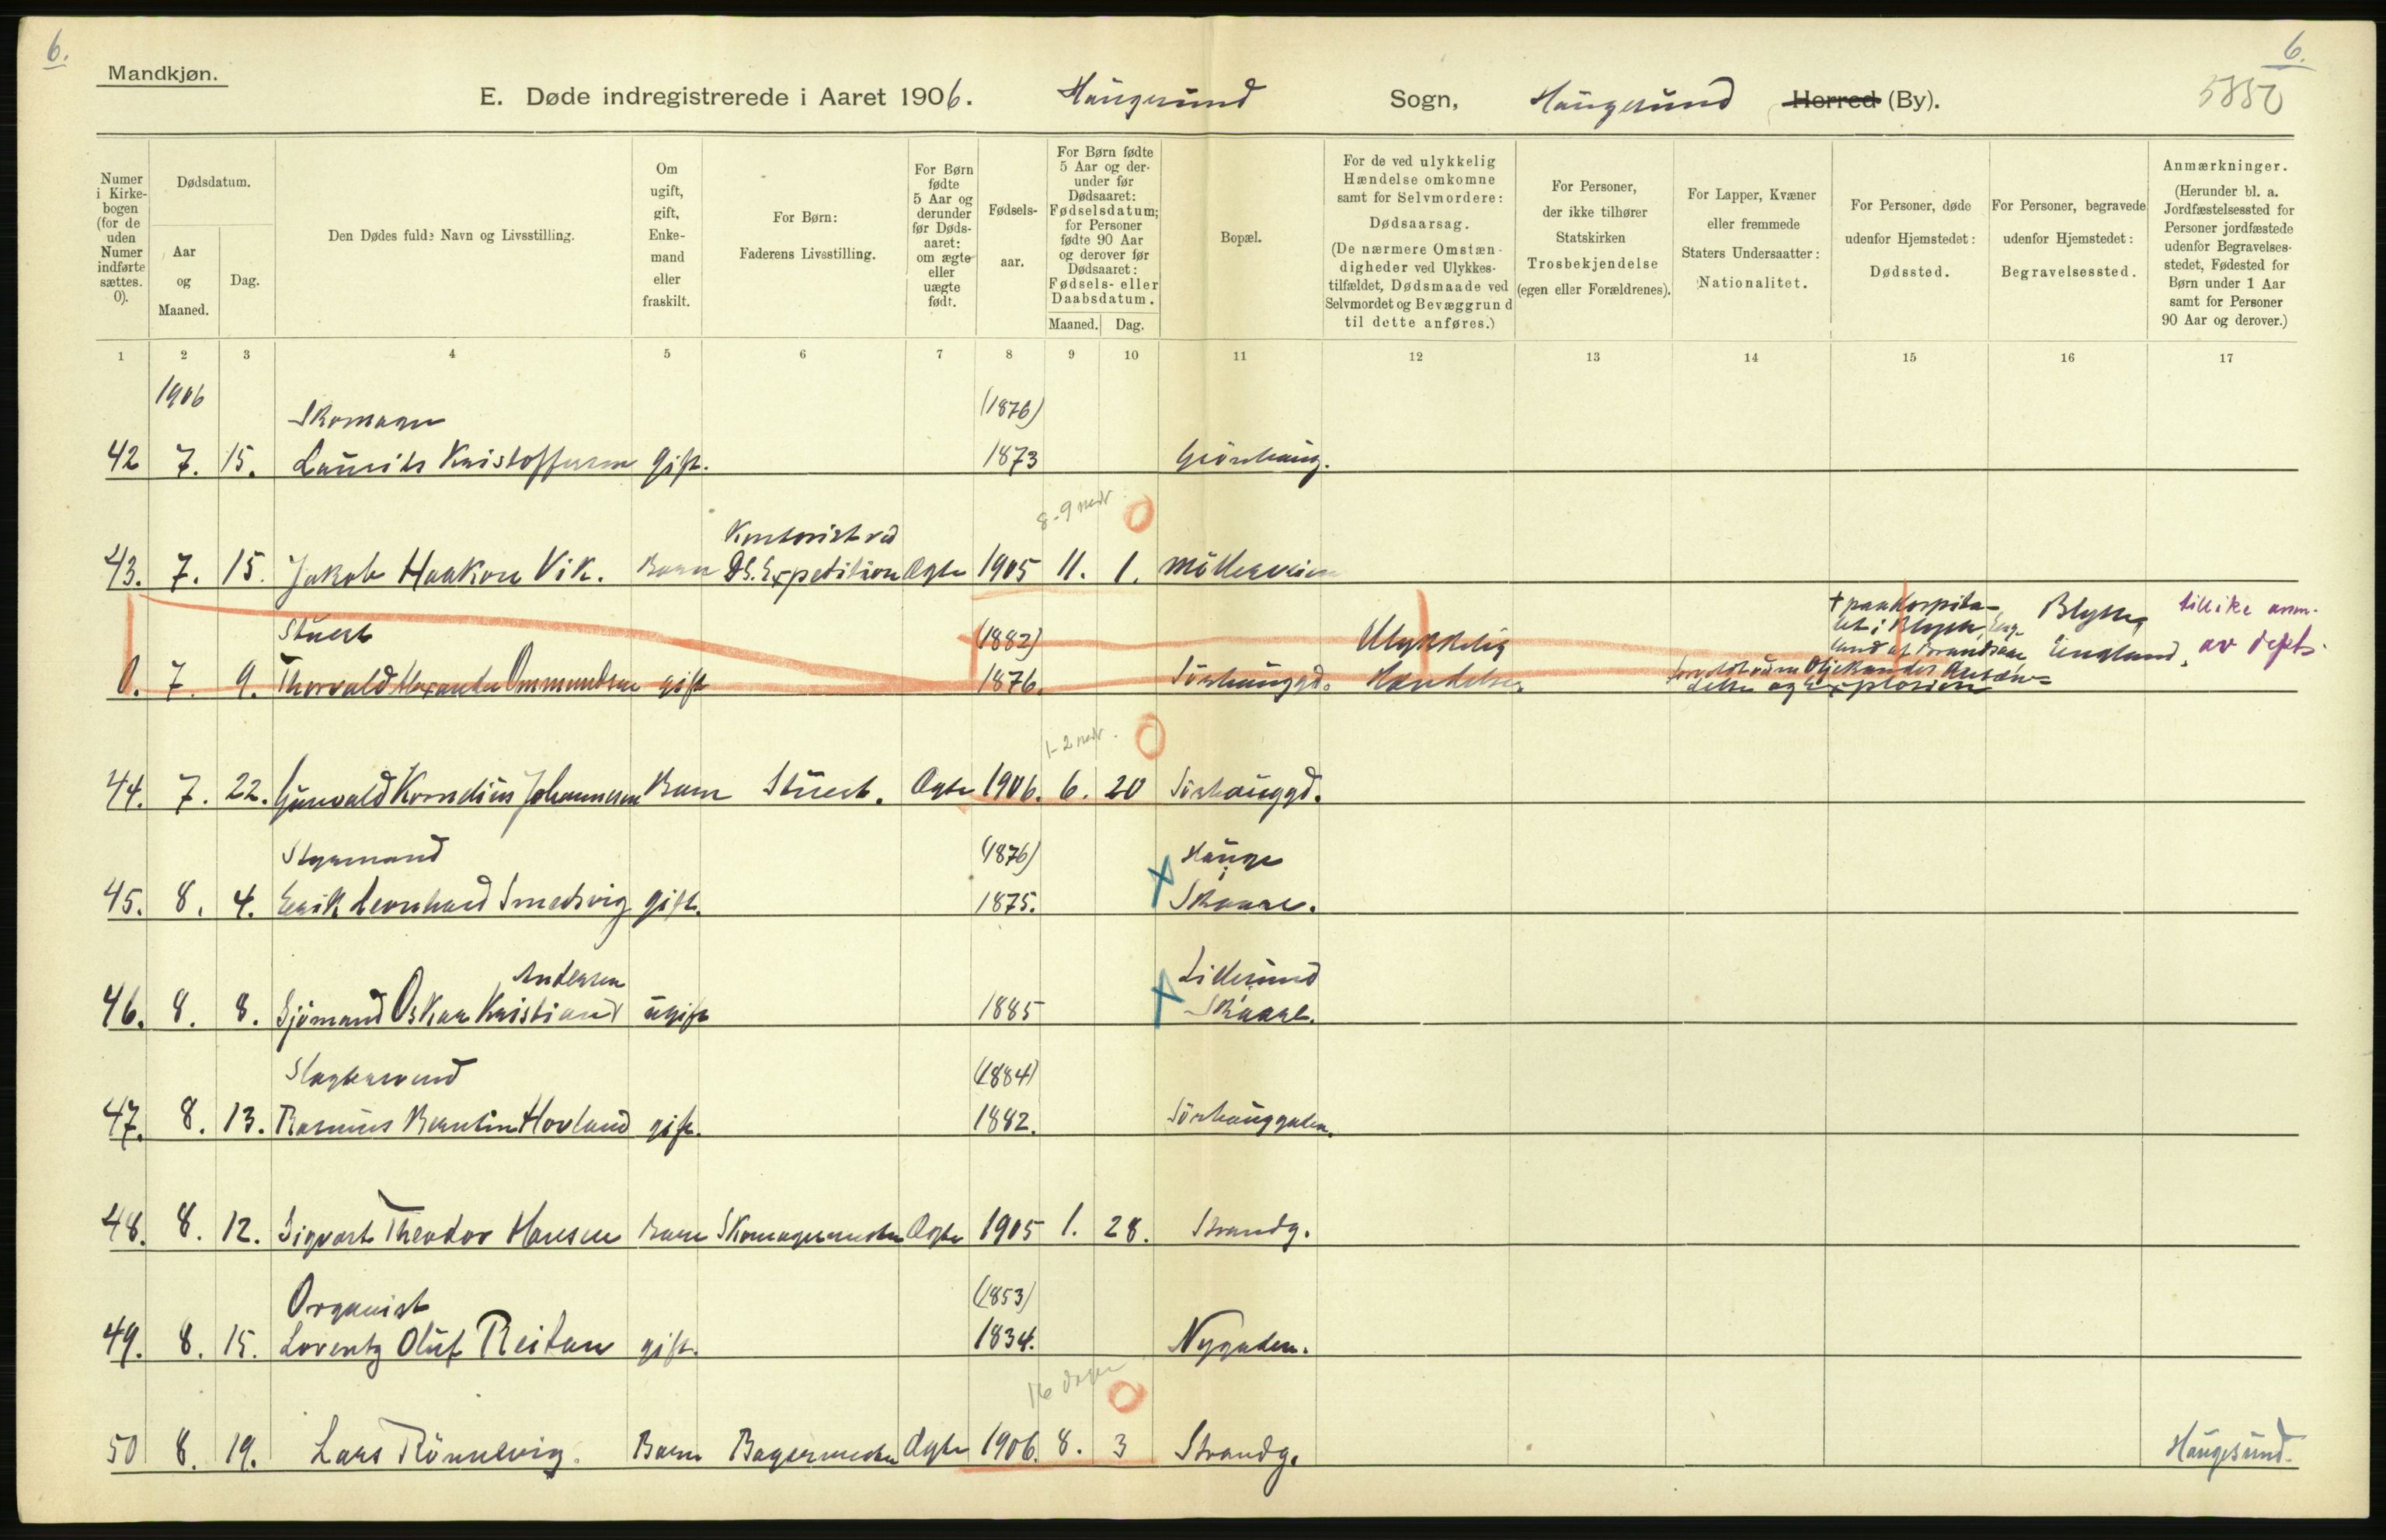 6.
6.
Mandkjøn.
E. Døde indregistrerede i Aaret 1906. Haugesund Sogn, Haugesund Herred (By).
5850
Numer i Kirkebogen (for de uden Numer indførte sættes. 0).
Dødsdatum.
Aar og Maaned.
Dag.
Den Dødes fulde Navn og Livsstilling.
Om ugift, gift, Enkemand eller fraskilt.
For Børn:
Faderens Livsstilling.
For Børn fødte 5 Aar og derunder før Dødsaaret: om ægte eller uægte født.
Fødselsaar.
For Børn fødte 5 Aar og derunder før Dødsaaret: Fødselsdatum; for Personer fødte 90 Aar og derover før Dødsaaret: Fødsels- eller Daabsdatum.
Maaned. Dag.
Bopæl.
For de ved ulykkelig Hændelse omkomne samt for Selvmordere:
Dødsaarsag.
(De nærmere Omstændigheder ved Ulykkestilfældet, Dødsmaade ved Selvmordet og Bevæggrund til dette anføres.)
For Personer, der ikke tilhører Statskirken
Trosbekjendelse
(egen eller Forældrenes).
For Lapper, Kvæner eller fremmede Staters Undersaatter:
Nationalitet.
For Personer, døde udenfor Hjemstedet:
Dødssted.
For Personer, begravede udenfor Hjemstedet:
Begravelsessted.
Anmærkninger.
(Herunder bl. a. Jordfæstelsessted for Personer jordfæstede udenfor Begravelsesstedet, Fødested for Børn under 1 Aar samt for Personer 90 Aar og derover.)
1 2 3 4 5 6 7 8 9 10 11 12 13 14 15 16 17
1906
Skomager (1876)
42 7. 15. Laurits Kristoffersen gift. 1873 Grönhaug.
8-9 mdr. 0
Kontorist ved
43. 7. 15. Jakob Haakon Vik. Barn D.S. Expedition Ægte 1905 11. 1. Möllerveien
Stuert (1882) Ulykkelig + paa Hospitalet i Blyth, England af Brandsaar Blyth, England. tillike anm. av dept.
0. 7. 9. Thorvald Alexander Ommundsen gift 1876. Sörhauggd. Hændelse, Oljekande Antændelse og Explosion
1-2 mdr. 0
44. 7. 22. Gunvald Kornelius Johannesen Barn Stuert. Ægte 1906. 6. 20 Sörhauggd.
Styrmand (1876) Hauge
45. 8. 4. Erik Leonhard Smedsvig gift. 1875. X Skaare.
Andersen Lillesund
46. 8. 8. Sjömand Oskar Kristian ugift 1885 X Skaare.
Slagtersvend (1884)
47. 8. 13. Rasmus Berntin Hovland gift. 1882. Sörhauggaden.
48. 8. 12. Sigvart Theodor Hansen Barn Skomagermester Ægte 1905 1. 28. Strandg.
Organist (1853)
49. 8. 15. Lorentz Oluf Reitan gift. 1834. Nygaden.
16 dage 0
50 8. 19. Lars Rönnevig. Barn Bagermester Ægte 1906. 8. 3 Strandg. Haugesund.